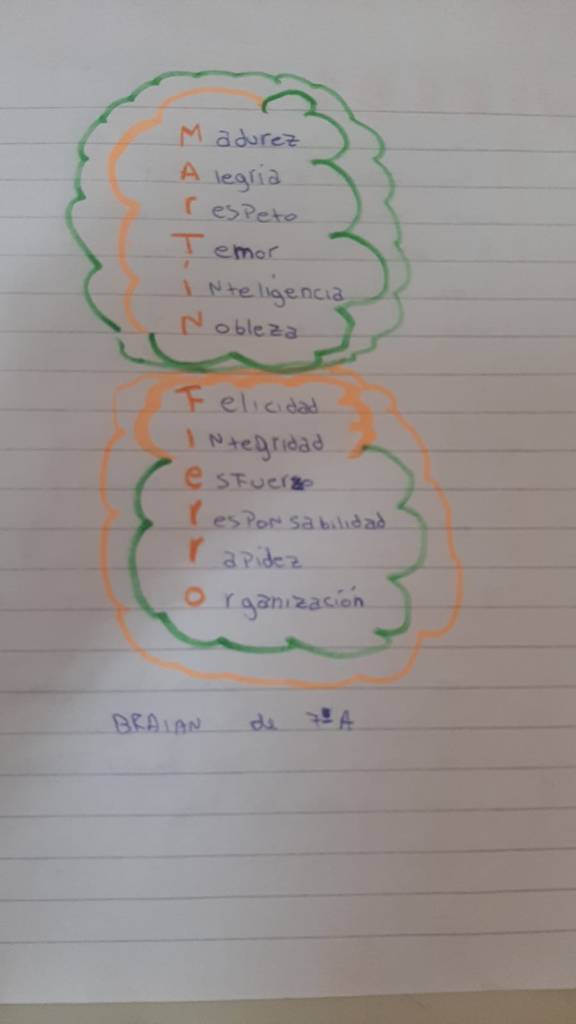 Madurez
Alegria
respeto
Temor
iNteligencia
Nobleza
Felicidad
INtegridad
esfuerzo
responsabilidad
rapidez
organización
BRAIAN de 7º A